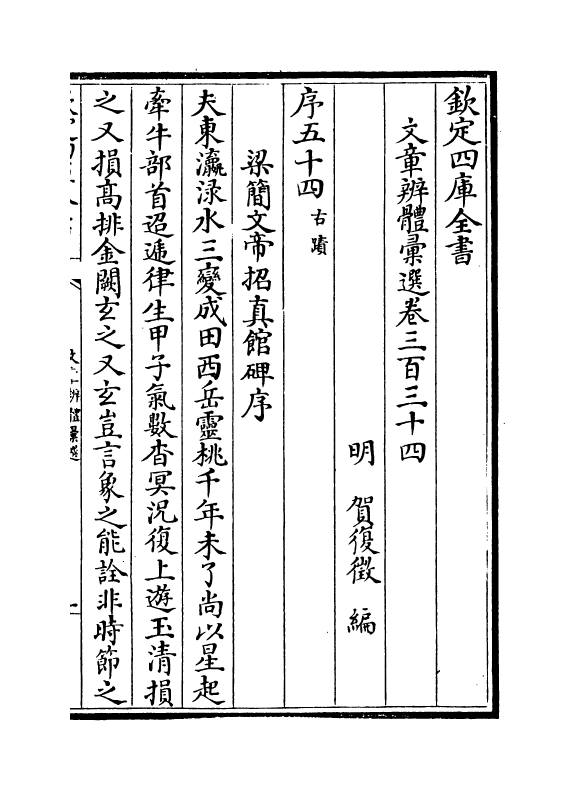 欽定四庫全書
文章辨體彙選卷三百三十四
明　賀復徵　編
序五十四古蹟
梁簡文帝招真館碑序
夫東瀛渌水三變成田西岳靈桃千年未了尚以星起
牽牛部首迢遞律生甲子氣數杳冥況復上遊玉清損
之又損髙排金闕玄之又玄豈言象之能詮非時節之
文章辨體彙選
一